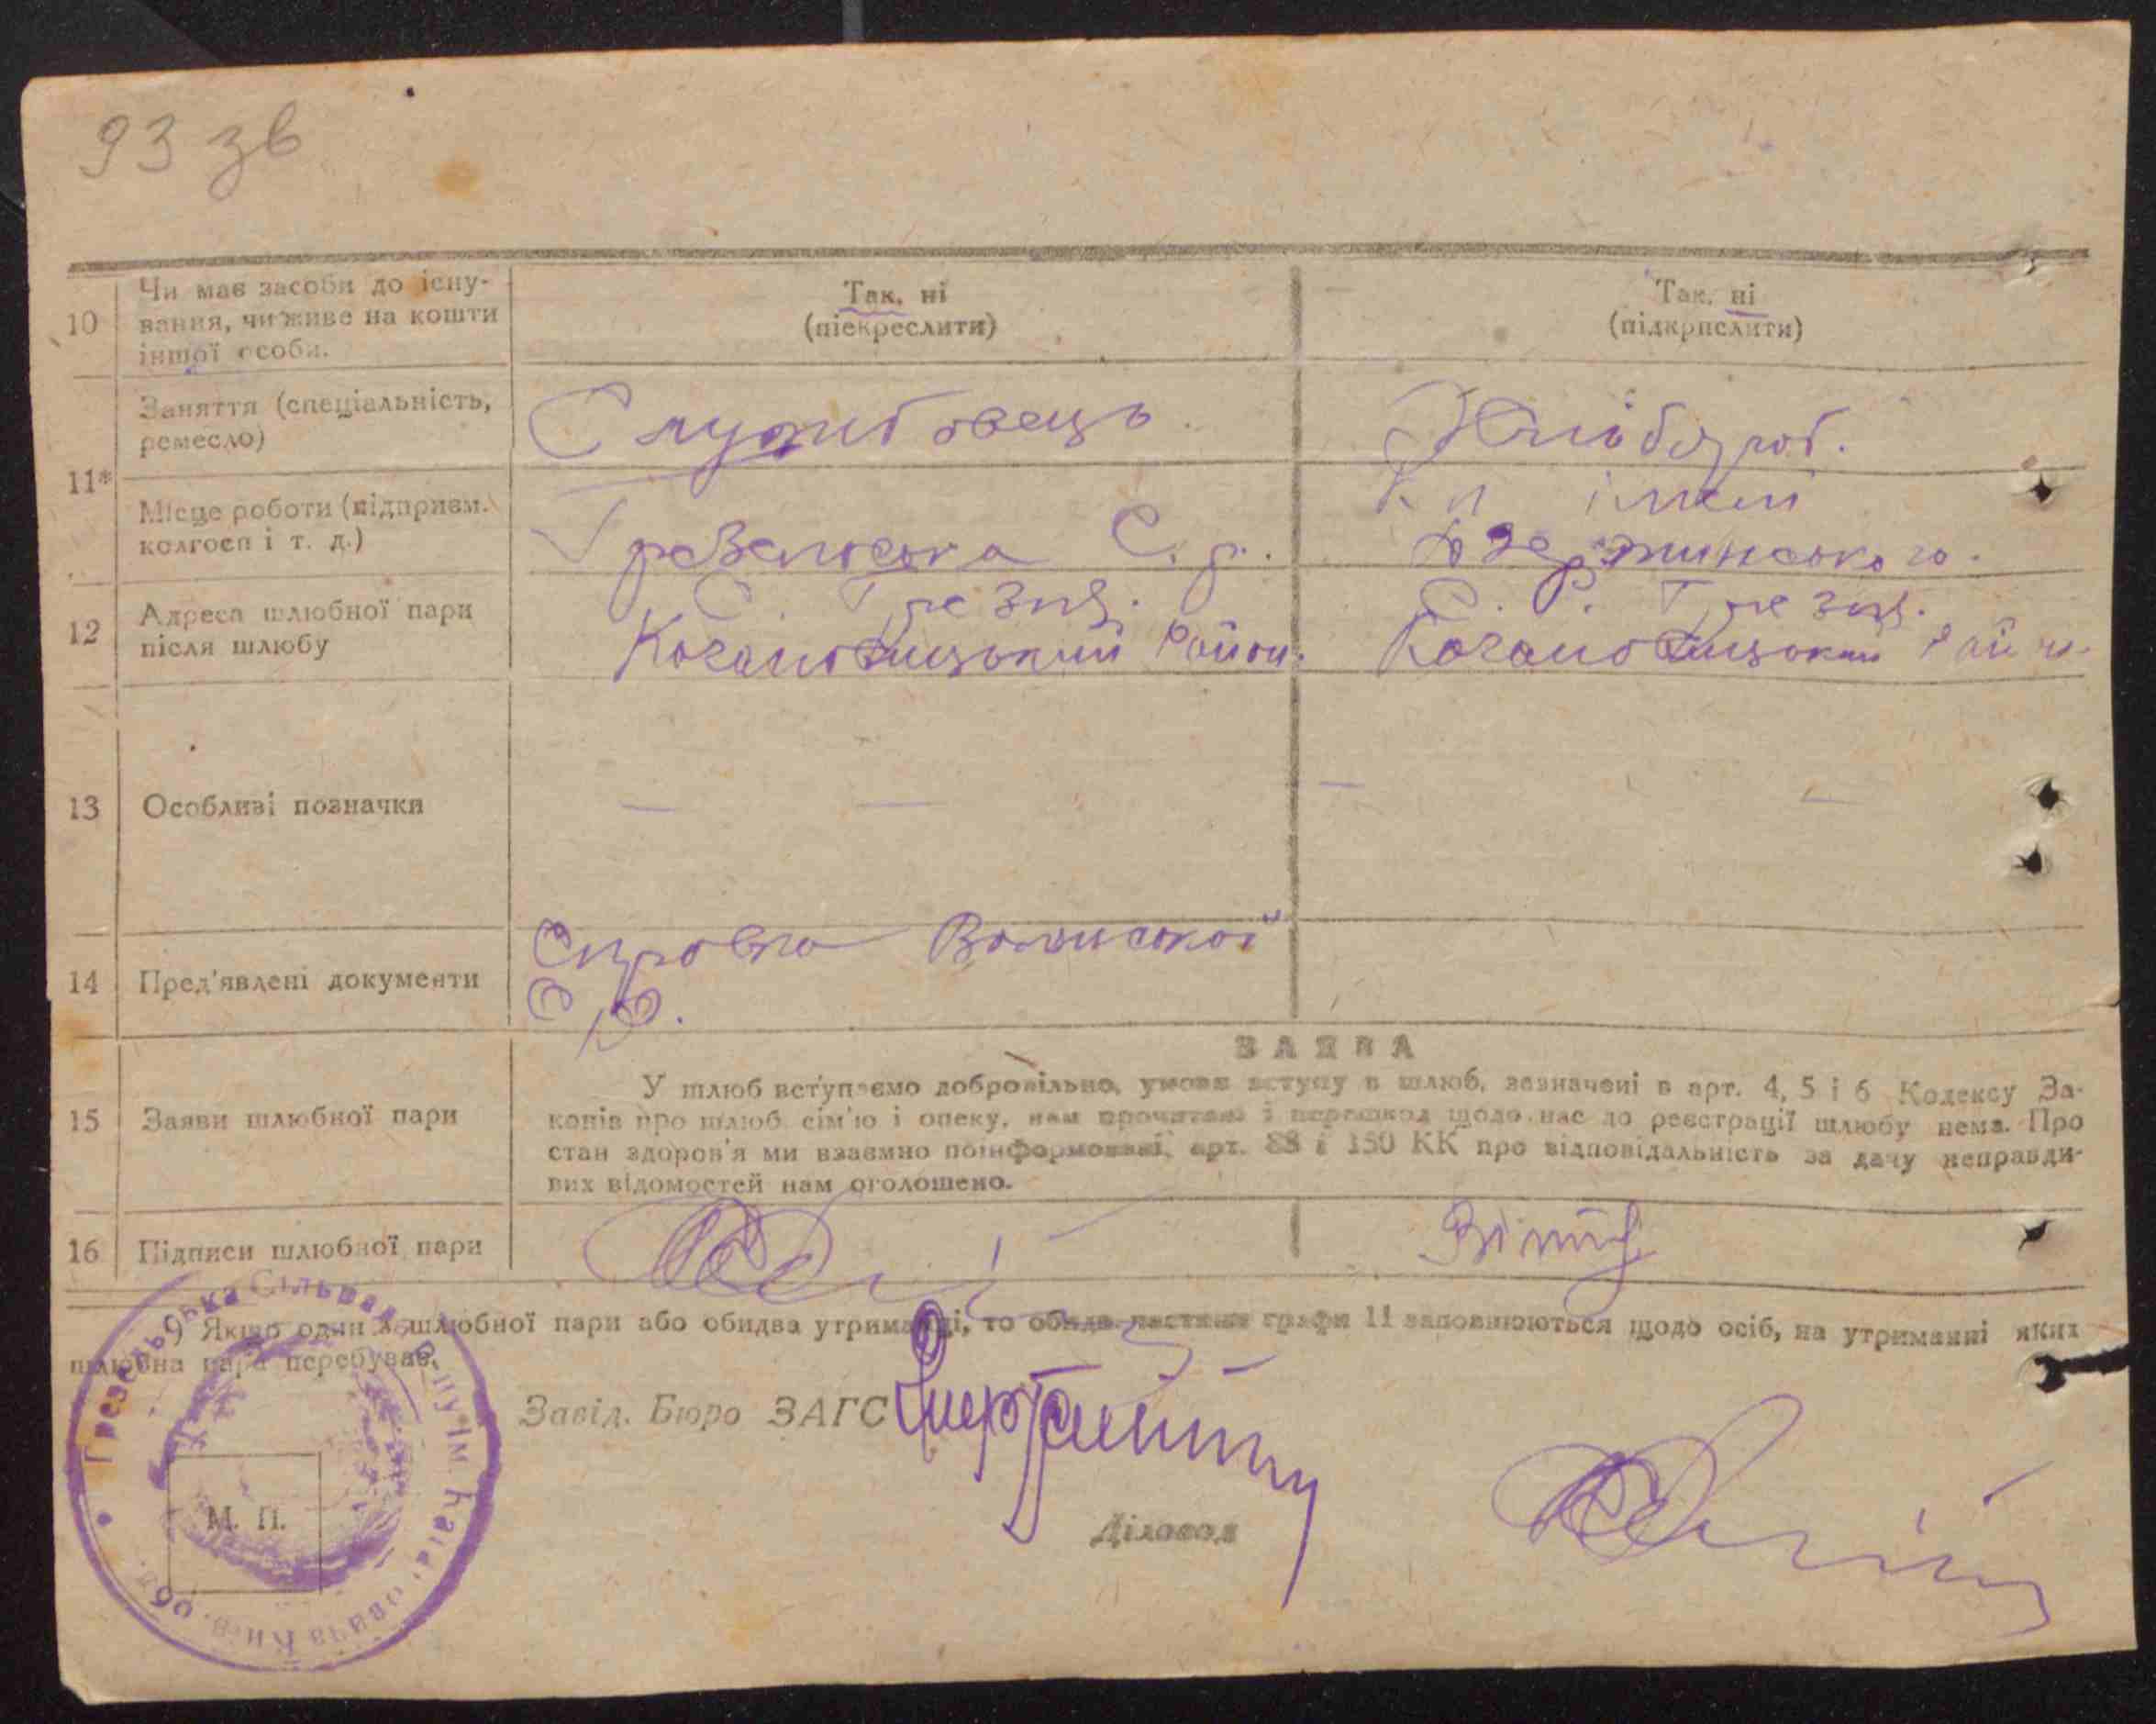 93 зв
10 Чи має засоби до існу-
вання, чи живе на кошти
іншої особи.
Так, ні
(піекреслити)
Так, ні
(підкрислити)
11*
Заняття (спеціальність,
ремесло)
Службовець
Хлібороб.
Місце роботи (підприєм.
колгосп і т. д.)
Грезельська С. р.
імені
Дзержинського.
12 Адреса шлюбної пари
після шлюбу
С. Грезля.
Кагановицький Район.
С. Грезля.
Кагановицький Район.
13 Особливі позначки
— —
— —
14 Пред'явлені документи
Справка
С. р.
15 Заяви шлюбної пари
ЗАЯВА
У шлюб вступаємо добровільно, умови вступу в шлюб, зазначені в арт. 4, 5 і 6 Кодексу За-
конів про шлюб сім'ю і опеку, нам прочитані і перешкод щодо нас до реєстрації шлюбу нема. Про
стан здоров'я ми взаємно поінформовані, арт. 88 і 150 КК про відповідальність за дачу неправди-
вих відомостей нам оголошено.
16 Підписи шлюбної пари
*) Якщо один з шлюбної пари або обидва утриманці, то обидві частини графи 11 заповнюються щодо осіб, на утриманні яких
шлюбна пара перебуває.
Завід. Бюро ЗАГС
М. П.
Діловод
Грезельська Сільрада
ім. Кагановича Київ. обл.